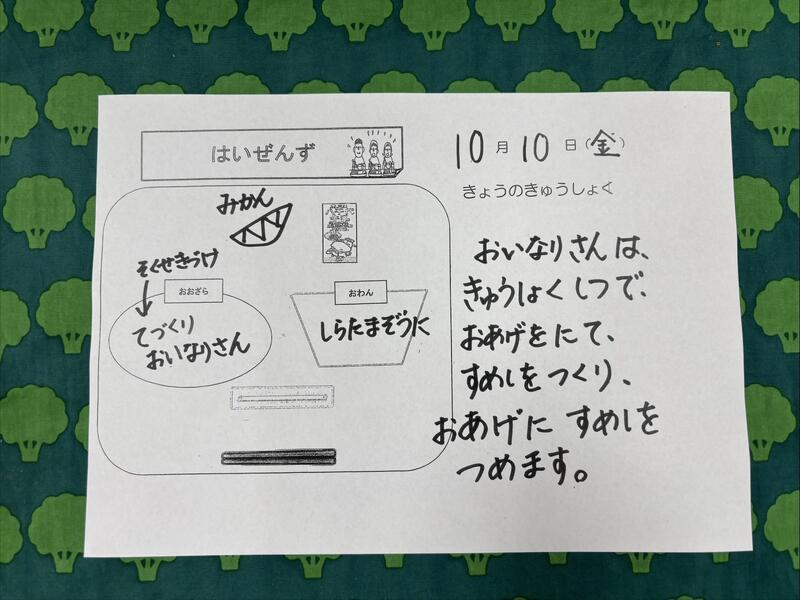 はいぜんず
10月10日(金)
きょうのきゅうしょく
みかん
そくせきづけ
おおざら
てづくり
おいなりさん
おわん
しらたまぞうに
おいなりさんは、
きゅうしょくしつで、
おあげをにて、
すめしをつくり、
おあげに すめしを
つめます。